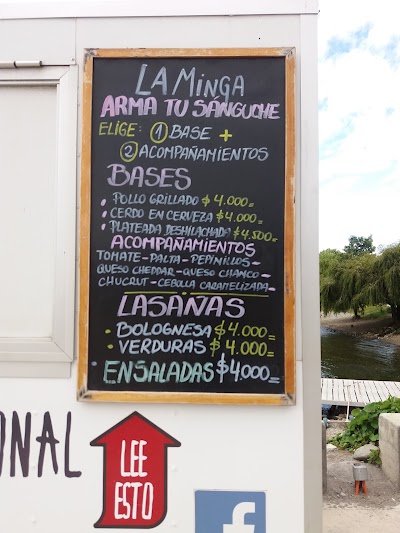 LA MINGA
ARMA TU SÁNGUCHE
ELIGE: ① BASE +
② ACOMPAÑAMIENTOS
BASES
• POLLO GRILLADO $4.000=
• CERDO EN CERVEZA $4.000=
• PLATEADA DESHILACHADA $4.500=
ACOMPAÑAMIENTOS
TOMATE - PALTA - PEPINILLOS -
QUESO CHEDDAR - QUESO CHANCO -
CHUCRUT - CEBOLLA CARAMELIZADA -
LASAÑAS
• BOLOGNESA $4.000=
• VERDURAS $4.000=
ENSALADAS $4.000=
ONAL
LEE
ESTO
f